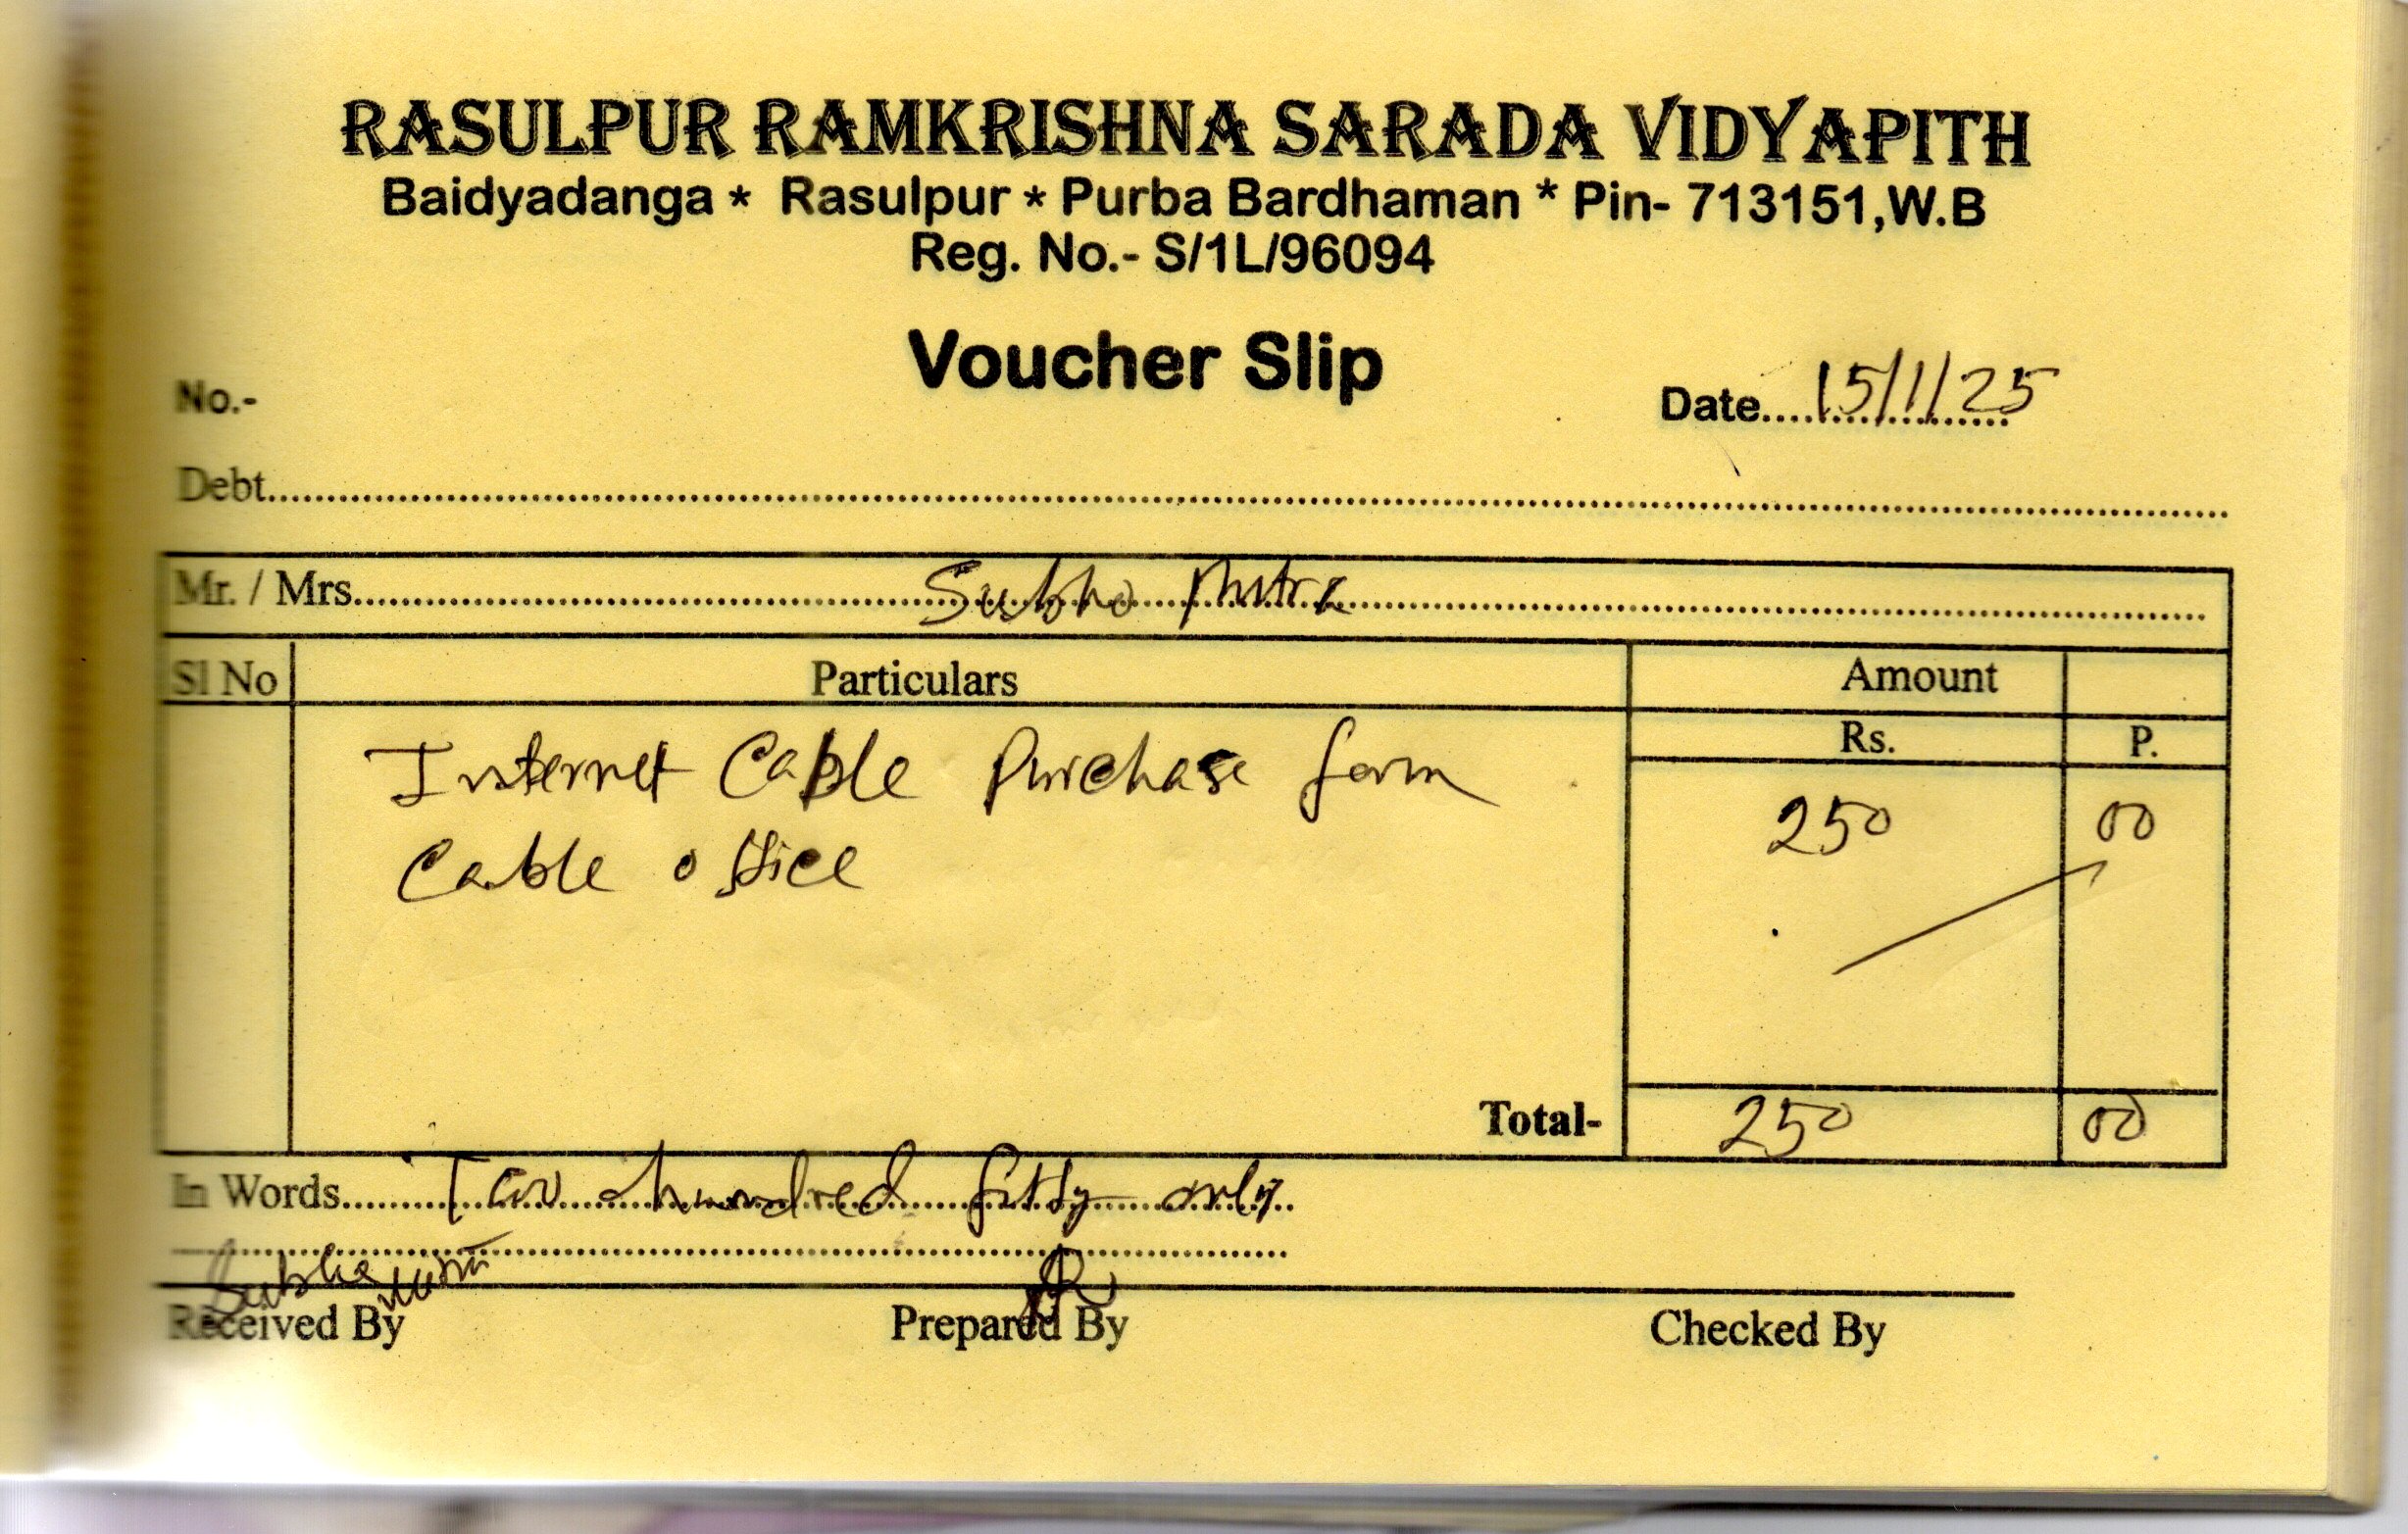 RASULPUR RAMKRISHNA SARADA VIDYAPITH
Baidyadanga * Rasulpur * Purba Bardhaman * Pin- 713151,W.B
Reg. No.- S/1L/96094
Voucher Slip
No.-
Date....15/1/25
Debt
Mr. / Mrs. Subho Mitra
Sl No Particulars Amount
Rs. P.
Internet Cable Purchase form
250 00
Cable office
Total- 250 00
In Words Two hundred fifty only
Subho Mitra
Received By Prepared By Checked By